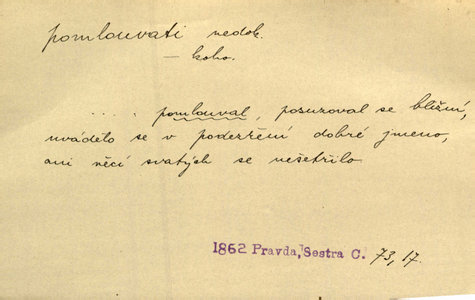 pomlouvati nedok.
— koho.
.... pomlouval, posuzoval se bližní,
uvádělo se v podezření dobré jméno,
ani věcí svatých se nešetřilo
1862 Pravda, Sestra C. 73, 17.